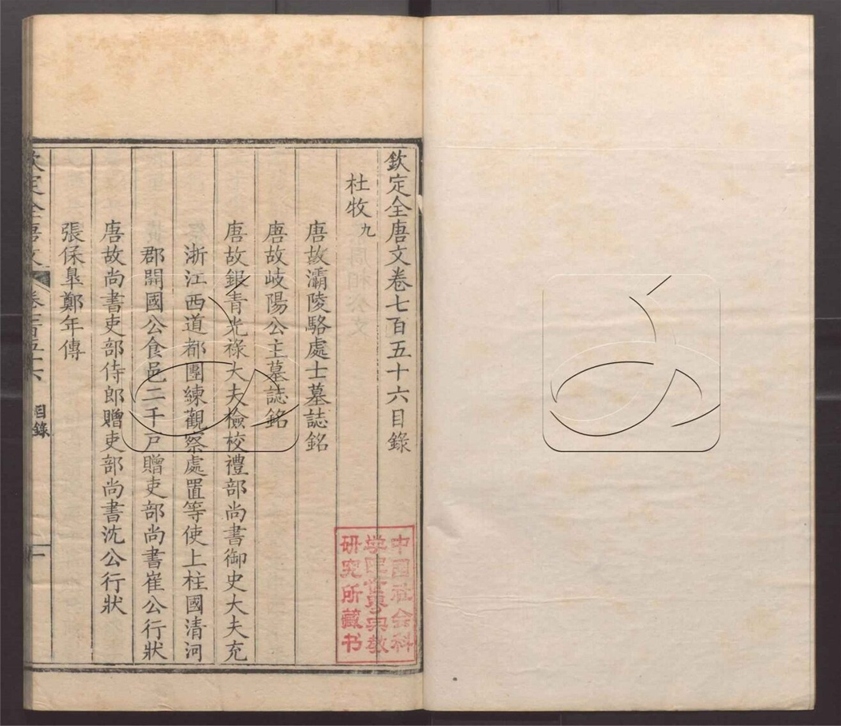 欽定全唐文卷七百五十六目錄
杜牧九
唐故灞陵駱處士墓誌銘
唐故岐陽公主墓誌銘
唐故銀青光祿大夫檢校禮部尚書御史大夫充
浙江西道都團練觀察處置等使上柱國清河
郡開國公食邑二千戶贈吏部尚書崔公行狀
唐故尚書吏部侍郎贈吏部尚書沈公行狀
張保皋鄭年傳
欽定全唐文 卷七百五十六 目錄 一
中国社会科
学院世界宗教
研究所藏书